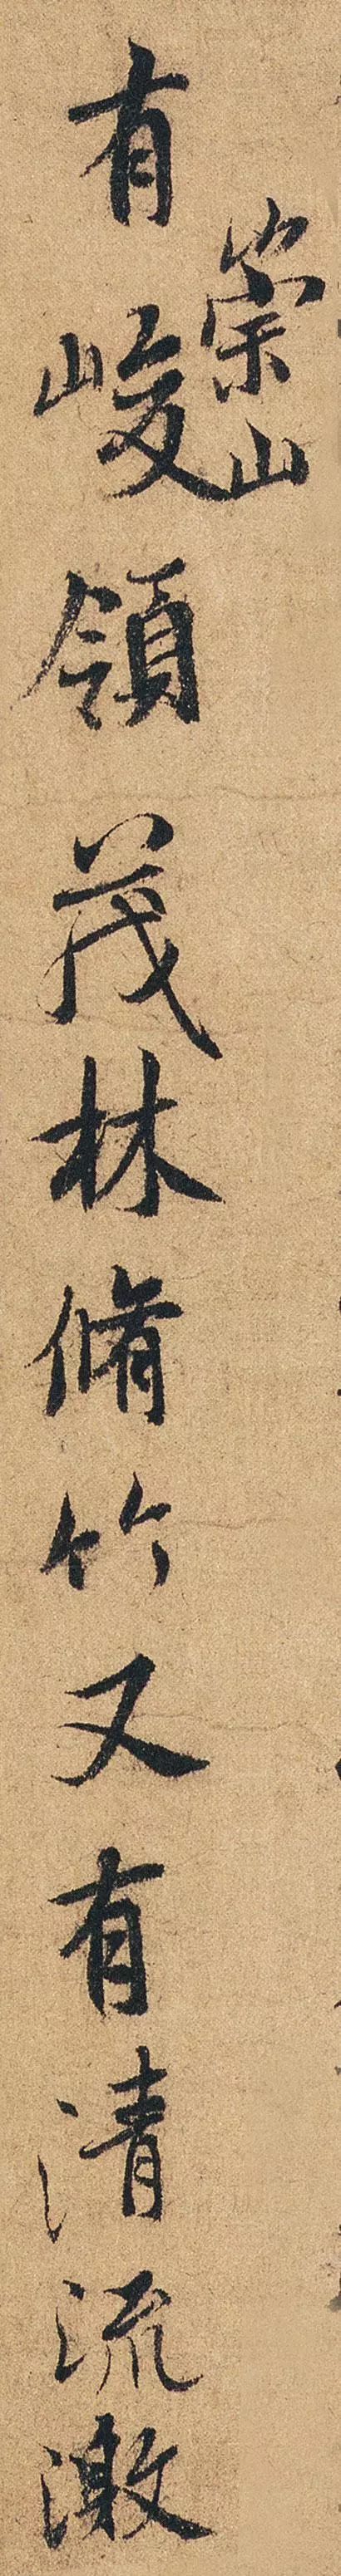 有崇山峻領茂林脩竹又有清流激